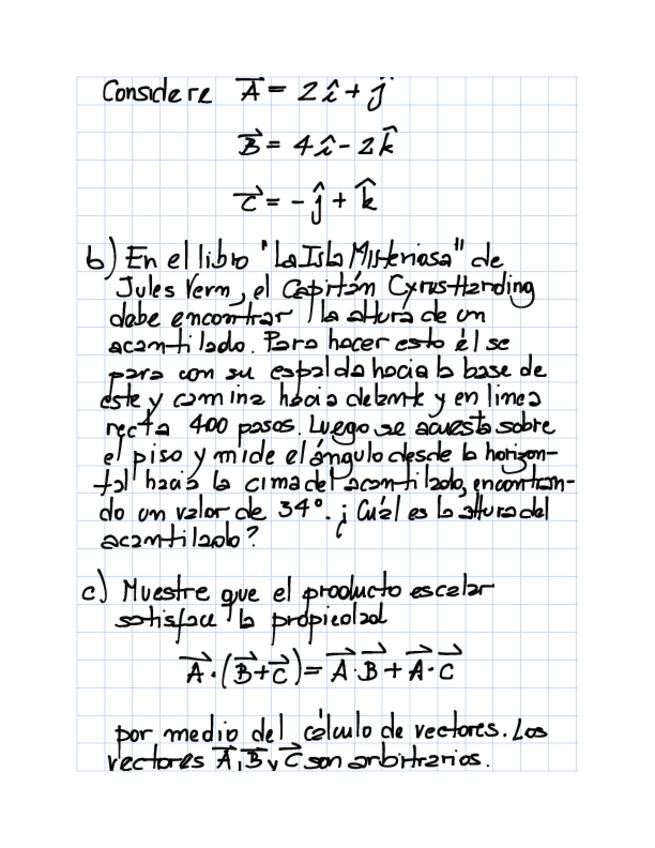 Considere A⃗ = 2î + ĵ
B⃗ = 4î - 2k̂
C⃗ = -ĵ + k̂
b) En el libro "La Isla Misteriosa" de
Jules Vern, el Capitán Cyrus Harding
debe encontrar la altura de un
acantilado. Para hacer esto él se
para con su espalda hacia la base de
éste y camina hacia delante y en linea
recta 400 pasos. Luego se acuesta sobre
el piso y mide el ángulo desde la horizon-
tal hacia la cima del acantilado, encontran-
do un valor de 34°. ¿Cuál es la altura del
acantilado?
c) Muestre que el producto escalar
satisface la propiedad
A⃗·(B⃗+C⃗) = A⃗·B⃗ + A⃗·C⃗
por medio del cálculo de vectores. Los
vectores A⃗, B⃗ y C⃗ son arbitrarios.